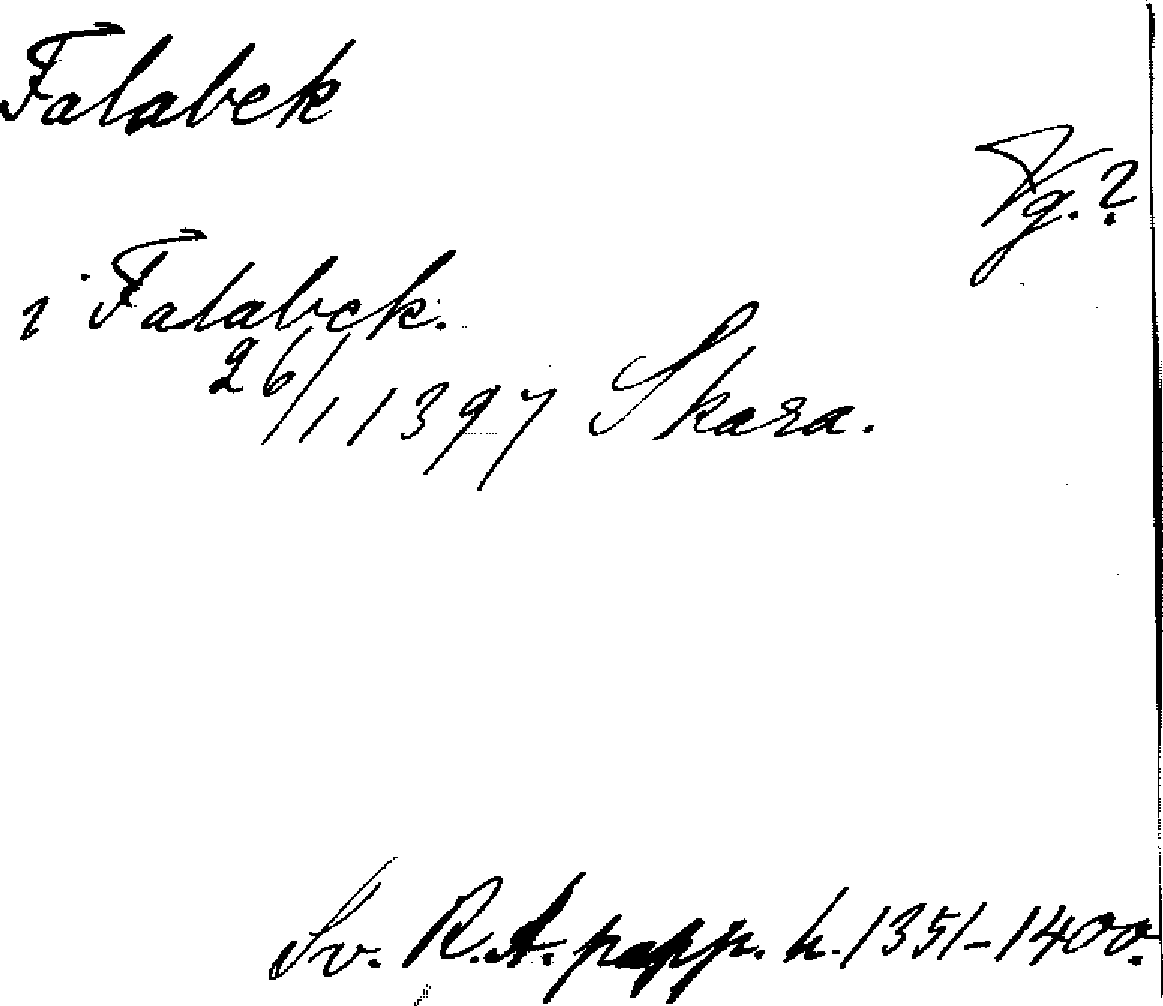 Falabek
Vg.?
i Falabek.
26/1 1397 Skara.
Sv. R.A. papp. h. 1351-1400.